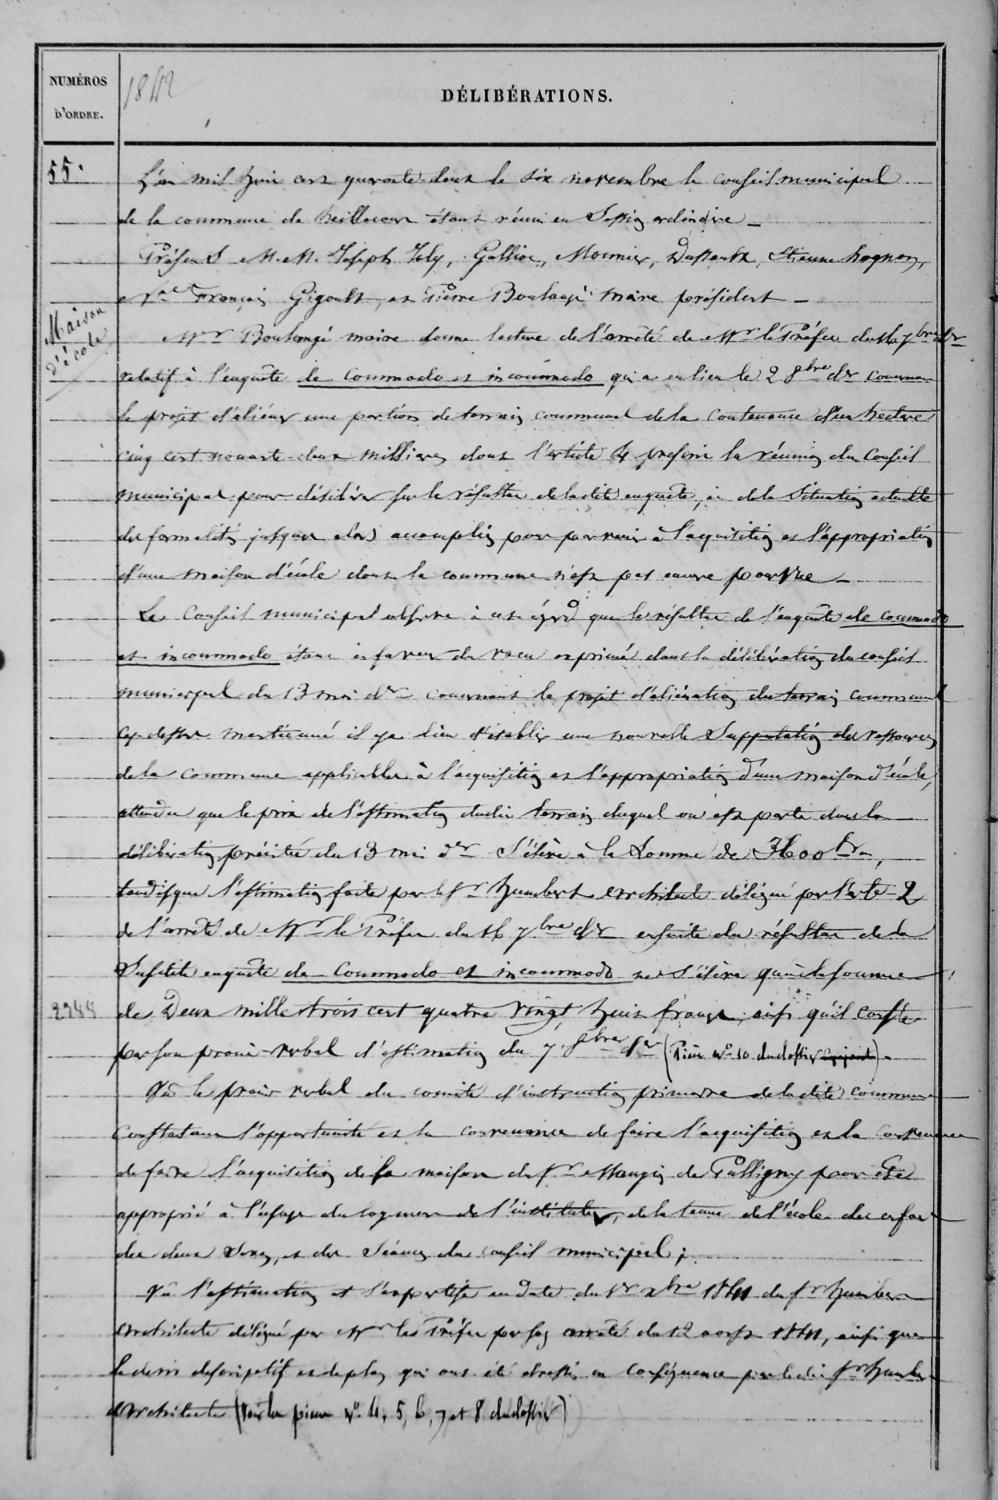 NUMÉROS
D'ORDRE.
1842
DÉLIBÉRATIONS.
55.
L'an mil huit cent quarante deux le six novembre le conseil municipal
de la commune de étant réuni en Session ordinaire
Présens M.M. Joseph Joly, Gallion, Mounier, Etienne
François Gigoult, et Pierre Boulangé maire président
Maison
d'école
Mr Boulangé maire donne lecture de l'arrêté de Mr le Préfet du 16 7bre dr
relatif à l'enquête de Commodo et incommodo qui a eu lieu le 2 8bre dr
le projet d'aliéner une portion de terrain communal de la contenance d'un hectare
cinq cent deux milliares dont l'article 4 prescrit la réunion du Conseil
municipal pour délibérer sur le résultat de ladite enquête, et de la situation actuelle
des formalités jusques alors accomplies pour parvenir à l'acquisition et l'appropriation
d'une maison d'école dont la commune n'est pas encore pourvue
Le Conseil municipal observe à cet égard que le résultat de l'enquête de commodo
et incommodo étant en faveur du vœu exprimé dans la délibération du conseil
municipal du 13 mai dr concernant le projet d'aliénation du terrain communal
cy dessus mentionné il y a lieu d'établir une nouvelle Supputation des ressources
de la commune applicables à l'acquisition et l'appropriation d'une maison d'école,
attendu que le prix de l'estimation dudit terrain duquel est porté dans la
délibération précitée du 13 mai dr s'élève à la Somme de
tandisque l'estimation faite par le Sr Humbert architecte délégué par l'arte 2
de l'arrêté de Mr le Préfet du 16 7bre dr ensuite du résultat de la
Susdite enquête de Commodo et incommodo ne s'élève qu'à la somme
2388
de Deux mille trois cent quatre vingt huit francs, ainsi qu'il conste
par son procès-verbal d'estimation du 7. 8bre dr (Pièce No 10 du dossier)
Vu le procès verbal du comité d'instruction primaire de ladite commune
Constatant l'opportunité et la convenance de faire l'acquisition et la convenance
de faire l'acquisition de la maison du Sr Mangin de Pulligny pour être
approprié à l'usage du logement de l'instituteur, de la tenue de l'école des enfans
des deux Sexes, et des Séances du conseil municipal;
Vu l'estimation et l'expertise en date du 1er xbre 1841 du Sr Humbert
architecte délégué par Mr le Préfet par son arrêté du 12 aoust 1841, ainsi que
le devis descriptif et de plus qui ont été dressés en conséquence par ledit Sr Humbert
architecte (voir les pièces No 4, 5, 6, 7 et 8 du dossier)